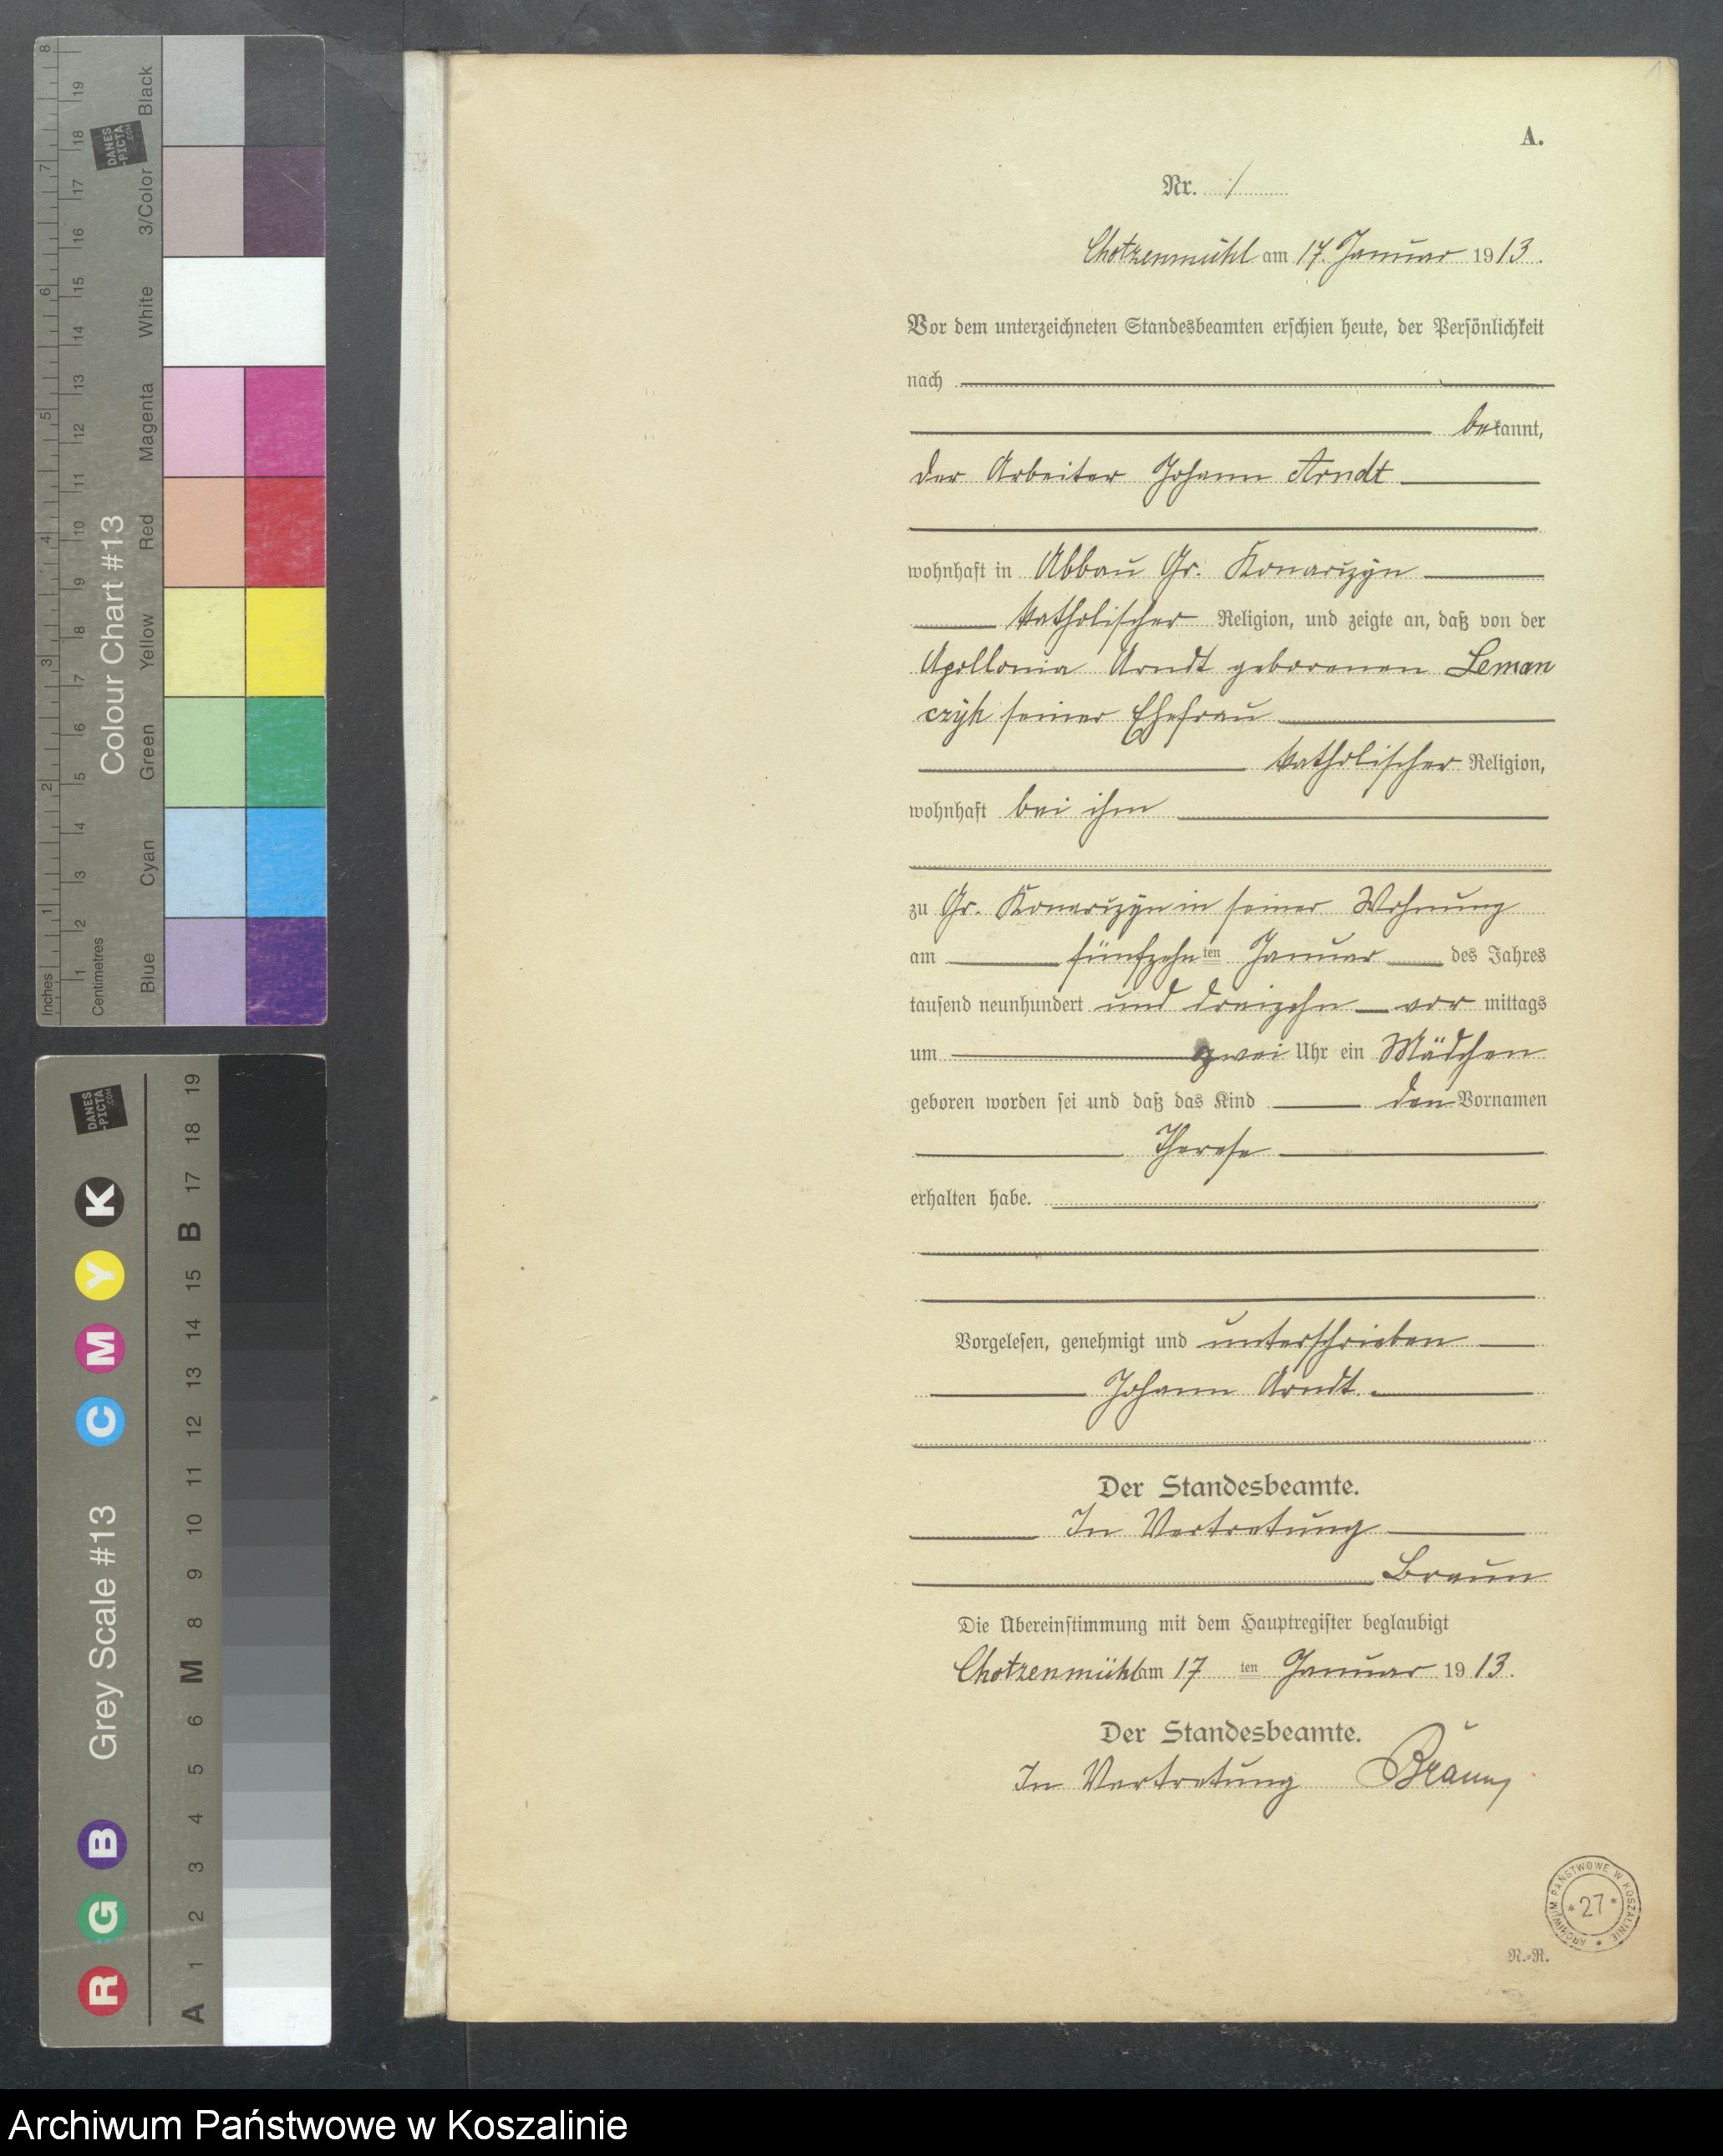 A.
Nr. 1
Chotzenmühl am 17. Januar 1913.
Vor dem unterzeichneten Standesbeamten erschien heute, der Persönlichkeit
nach
bekannt,
der Arbeiter Johann Arndt
wohnhaft in Abbau Gr. Konarczyn
katholischer Religion, und zeigte an, daß von der
Apollonia Arndt geborenen Leman
czyk seiner Ehefrau
katholischer Religion,
wohnhaft bei ihm
zu Gr. Konarczyn in seiner Wohnung
am fünfzehnten Januar des Jahres
tausend neunhundert und dreizehn vormittags
um zwei Uhr ein Mädchen
geboren worden sei und daß das Kind den Vornamen
Therese
erhalten habe.
Vorgelesen, genehmigt und unterschrieben
Johann Arndt.
Der Standesbeamte.
In Vertretung
Braun
Die Übereinstimmung mit dem Hauptregister beglaubigt
Chotzenmühl am 17ten Januar 1913.
Der Standesbeamte.
In Vertretung Braun
ARCHIWUM PAŃSTWOWE W KOSZALINIE
* 27 *
N.-R.
Colour Chart #13
Black
3/Color
White
Magenta
Red
Yellow
Green
Cyan
Blue
Inches
1 2 3 4 5 6 7 8
Centimetres
1 2 3 4 5 6 7 8 9 10 11 12 13 14 15 16 17 18 19
DANES
-PICTA
.COM
Grey Scale #13
R G B C M Y K
A 1 2 3 4 5 6 M 8 9 10 11 12 13 14 15 B 17 18 19
DANES
-PICTA
.COM
Archiwum Państwowe w Koszalinie